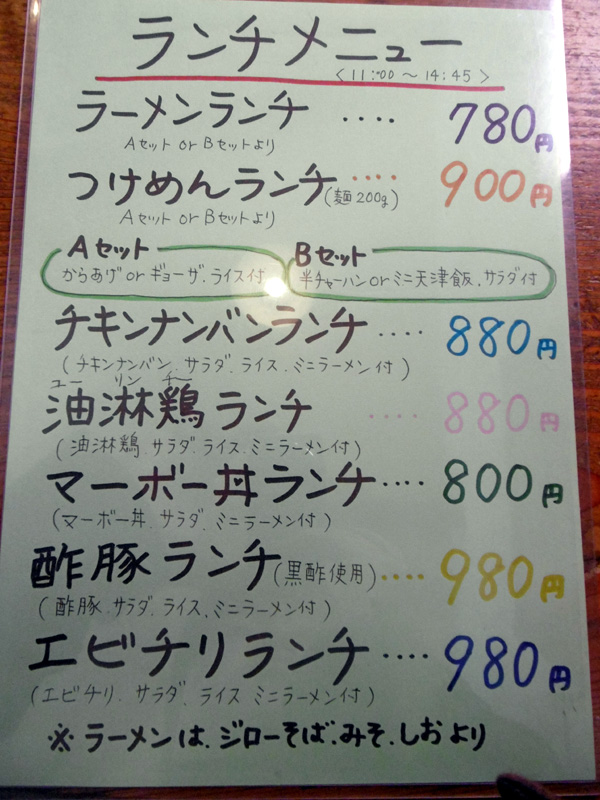 ランチメニュー
< 11:00 〜 14:45 >
ラーメンランチ ‥‥ 780円
Aセット or Bセットより
つけめんランチ(麺200g) ‥‥ 900円
Aセット or Bセットより
Aセット
からあげ or ギョーザ、ライス付
Bセット
半チャーハン or ミニ天津飯、サラダ付
チキンナンバンランチ ‥‥ 880円
(チキンナンバン、サラダ、ライス、ミニラーメン付)
ユー リン チー
油淋鶏ランチ ‥‥ 880円
(油淋鶏、サラダ、ライス、ミニラーメン付)
マーボー丼ランチ ‥‥ 800円
(マーボー丼、サラダ、ミニラーメン付)
酢豚ランチ(黒酢使用) ‥‥ 980円
(酢豚、サラダ、ライス、ミニラーメン付)
エビチリランチ ‥‥ 980円
(エビチリ、サラダ、ライス ミニラーメン付)
※ ラーメンは、ジローそば、みそ、しおより